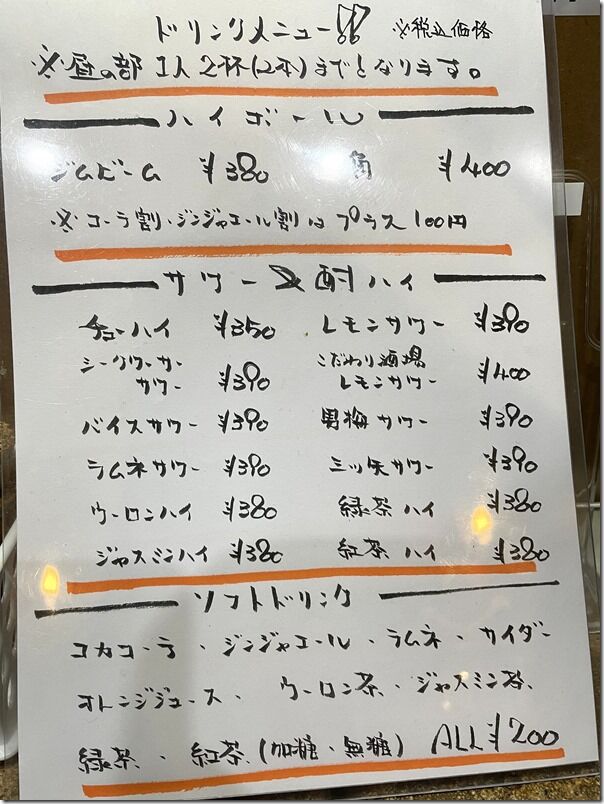 ドリンクメニュー!! ※税込価格
※昼の部 1人2杯(2本)までとなります。
ハイボール
ジムビーム ¥380 角 ¥400
※コーラ割・ジンジャエール割はプラス100円
サワー 酎ハイ
チューハイ ¥350 レモンサワー ¥390
シークワーサーサワー ¥390 こだわり酒場レモンサワー ¥400
バイスサワー ¥390 男梅サワー ¥390
ラムネサワー ¥390 三ツ矢サワー ¥390
ウーロンハイ ¥380 緑茶ハイ ¥380
ジャスミンハイ ¥380 紅茶ハイ ¥380
ソフトドリンク
コカコーラ・ジンジャエール・ラムネ・サイダー
オレンジジュース・ウーロン茶・ジャスミン茶
緑茶・紅茶(加糖・無糖) ALL¥200